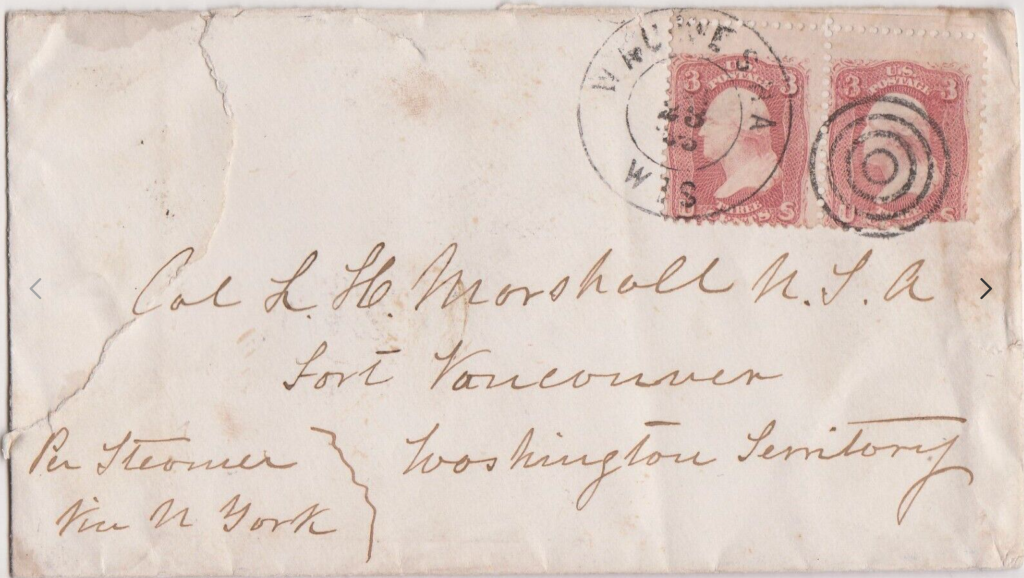 WAUKESHA
WIS
3 U.S. 3
POSTAGE
U THREE S
CENTS
3 U.S. 3
POSTAGE
U S
Col L. H. Marshall U. S. A
Fort Vancouver
Washington Territory
Per Steamer
Via N York